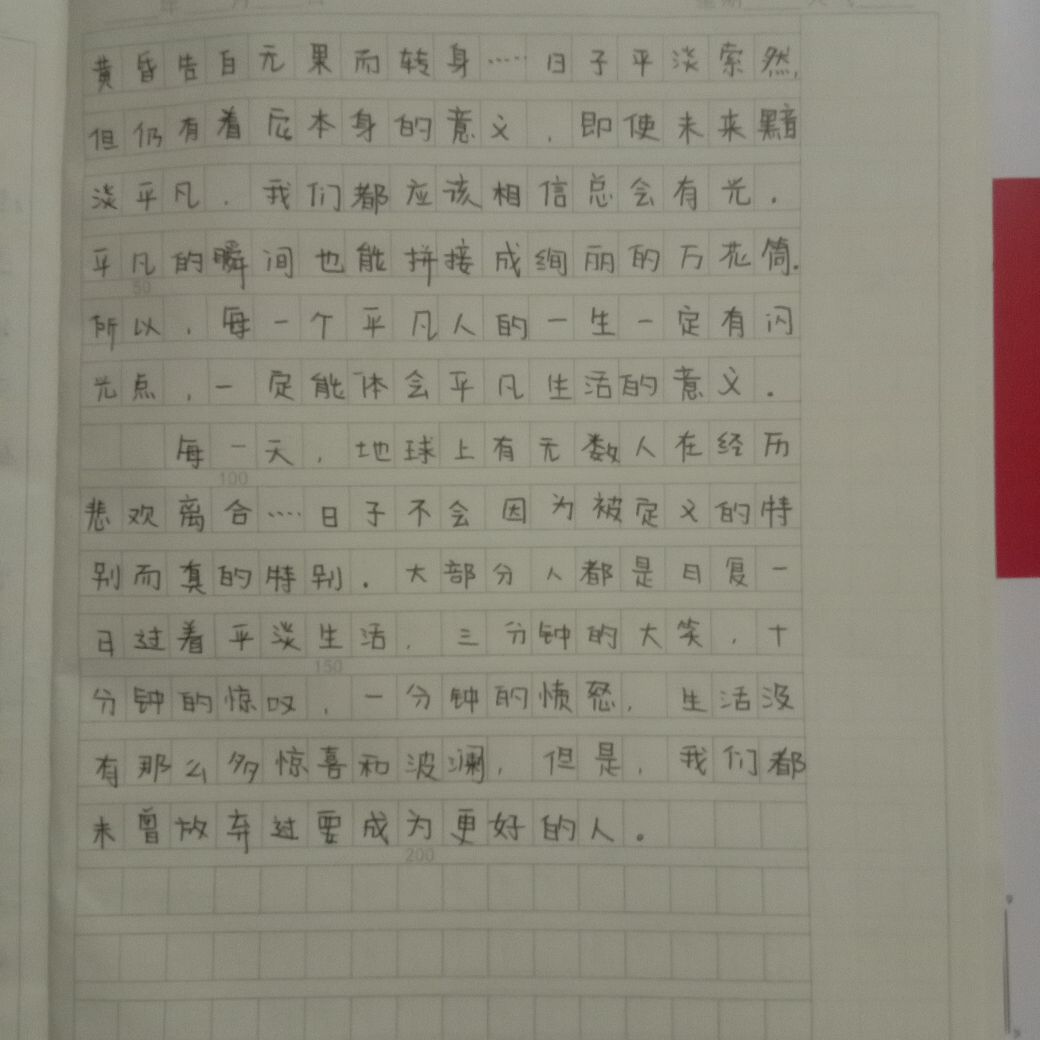 黄昏告白无果而转身……日子平淡索然,
但仍有着应本身的意义，即使未来黯
淡平凡，我们都应该相信总会有光.
平凡的瞬间也能拼接成绚丽的万花筒.
50
所以，每一个平凡人的一生一定有闪
光点，一定能体会平凡生活的意义.
每一天，地球上有无数人在经历
100
悲欢离合……日子不会因为被定义的特
别而真的特别.大部分人都是日复一
日过着平淡生活，三分钟的大笑，十
150
分钟的惊叹，一分钟的愤怒，生活没
有那么多惊喜和波澜，但是，我们都
未曾放弃过要成为更好的人。
200